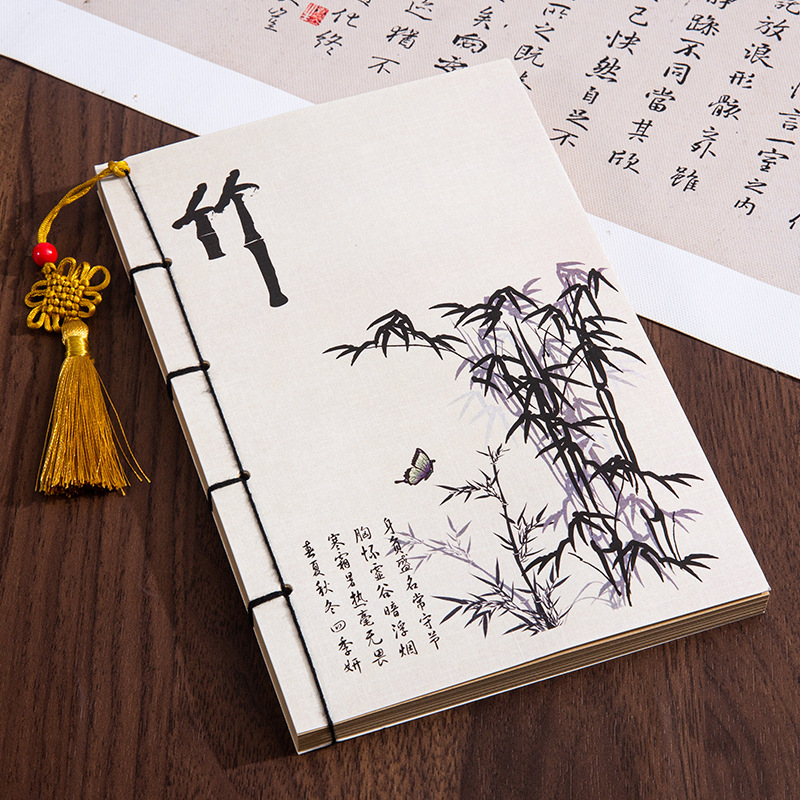 竹
身負盛名常守节
胸怀虚谷暗浮烟
寒霜暑热毫无畏
春夏秋冬四季妍
言一室之内
放浪形骸之外雖
躁不同當其欣
己快然自足不
所之既
矣向
迹猶不
化終